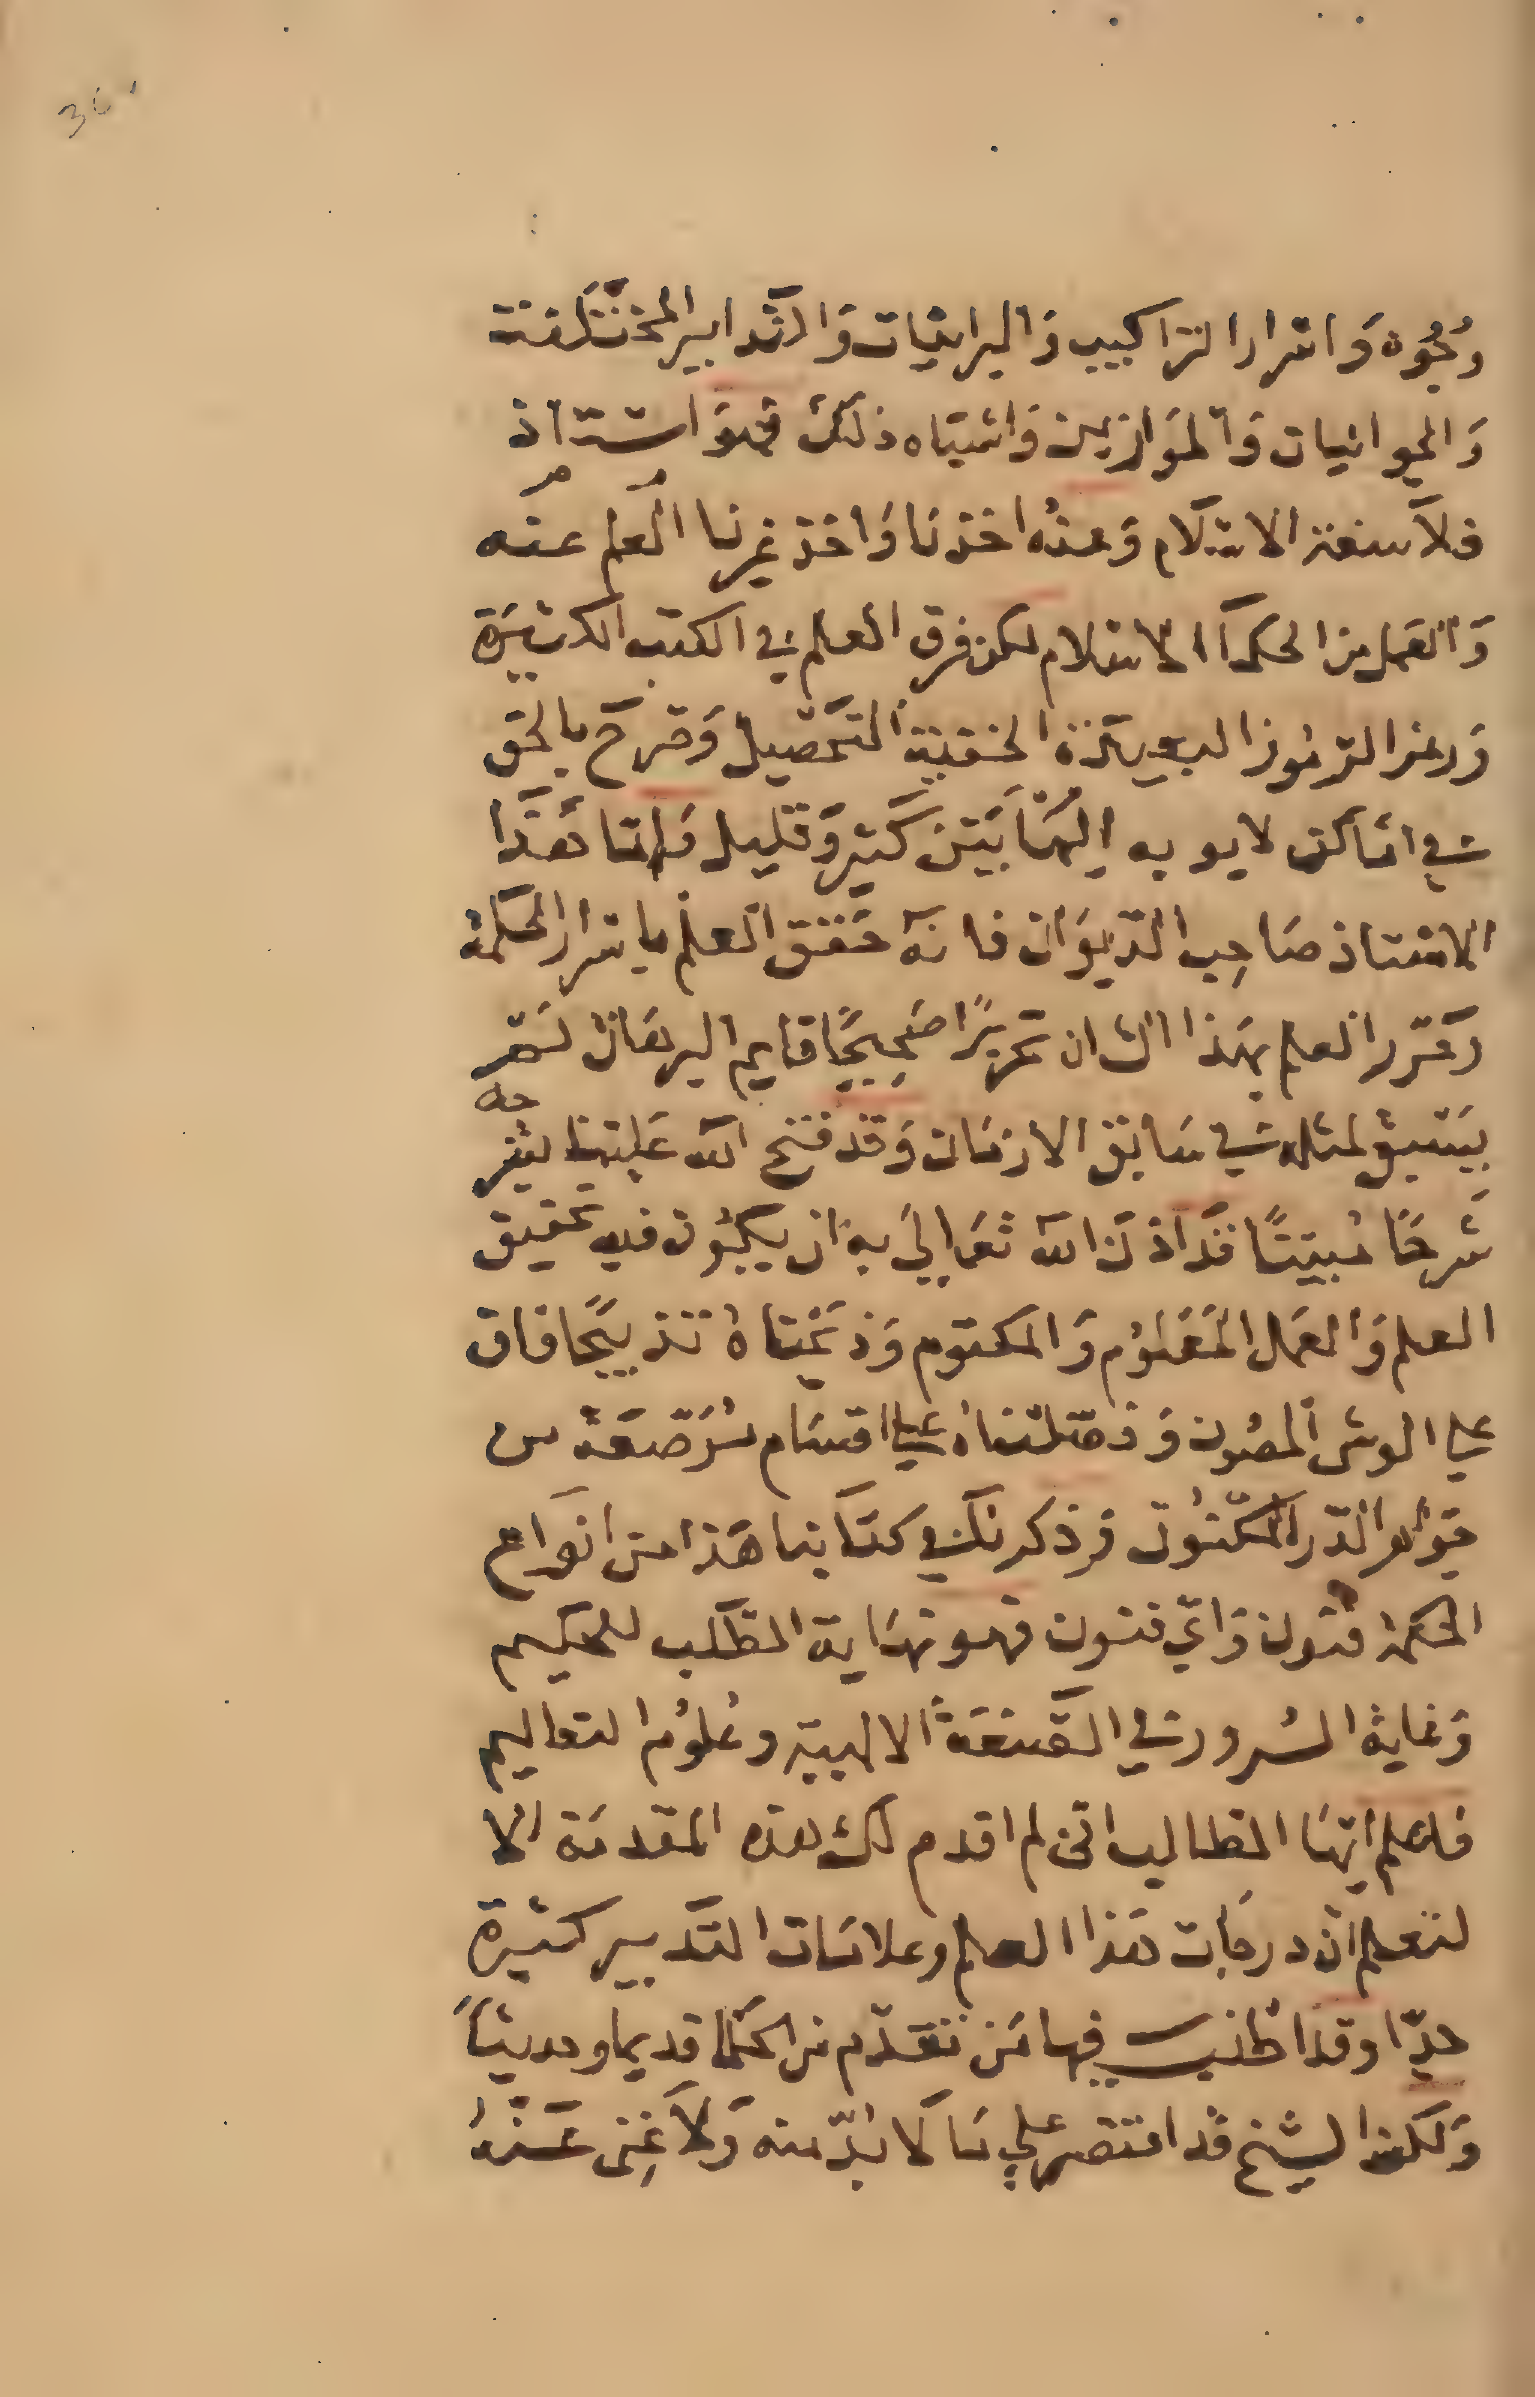 وُجُوه وَاسرار التراكيب وَالبرانيات وَالتدابير المختلفة
وَالجوانيات وَالموَازين وَاشباه ذلك فهوَ استاذ
فلاسفة الاسلام وَعنهُ اخذنا وَاخذ غيرنا العلم عنه
وَالعمل من الحكمآء الاسلام لكن فرق العلم في الكتب الكثيرَة
وَرمز الرّموُز البعيدَة الخفيّة التحصيل وَصَرحَ بالحق
في امَاكن لا يوبه اليهَا بَين كثير وَقليل وَامّا هَذا
الاستاذ صَاحِب الدّيوَان فانه حَقق العلم باسرار الحكمة
وَحَرّر العلم بهَذا الشان تحريرًا صَحِيحًا قايم البرهَان لَم
يَسبق لمثله في سَابق الازمَان وَقد فتح الله عَلينا بشرحه
شَرحًا مُبينًا قد اذن الله تعَالي به ان يكُون فيه تحقيق
العلم وَالعمَل المَعلوُم وَالمكتوم وَذبّحناهُ تذبيحًا فاق
علي الوشي المصُون وَفصّلناهُ علي اقسَام مُرَصّعَة من
جَوَاهر الدّر المكنُون وَذكر لك في كتَابنا هَذا من انوَاع
الحكمة فنون وَايّ فنون فهو نهَاية الطَلب للحكيم
وَغاية السُرور في الصّنعَة الالهية وعُلوُم التعاليم
فاعلم ايّهَا الطالب اني لم اقدم لك هذه المقدمَة الا
لتعلم ان درجَات هَذا العلم وعلامَات التدبير كثيرة
جدّا وقد اطنب فيها مَن تقدّم من الحكمَا قديما وحديثاً
وَلكن الشيخ قد اقتصر علي مَا لَا بُدّ منه وَلَا غِنى عَنْهُ